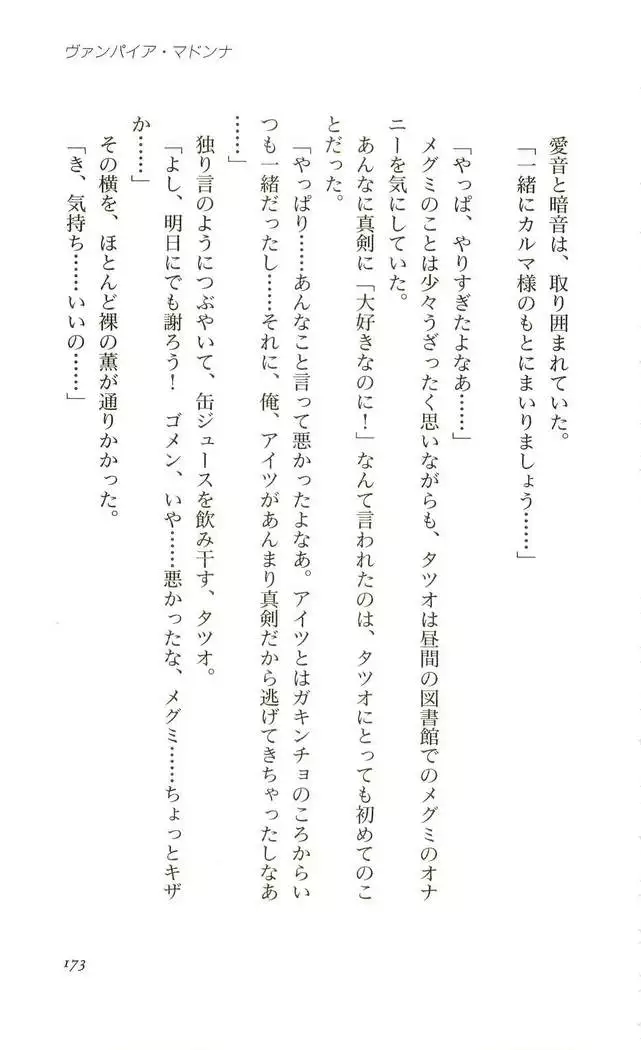 ヴァンパイア・マドンナ
愛音と暗音は、取り囲まれていた。
「一緒にカルマ様のもとにまいりましょう……」
「やっぱ、やりすぎたよなあ……」
メグミのことは少々うざったく思いながらも、タツオは昼間の図書館でのメグミのオナ
ニーを気にしていた。
あんなに真剣に「大好きなのに！」なんて言われたのは、タツオにとっても初めてのこ
とだった。
「やっぱり……あんなこと言って悪かったよなあ。アイツとはガキンチョのころからい
つも一緒だったし……それに、俺、アイツがあんまり真剣だから逃げてきちゃったしなあ
……」
独り言のようにつぶやいて、缶ジュースを飲み干す、タツオ。
「よし、明日にでも謝ろう！　ゴメン、いや……悪かったな、メグミ……ちょっとキザ
か……」
その横を、ほとんど裸の薫が通りかかった。
「き、気持ち……いいの……」
173